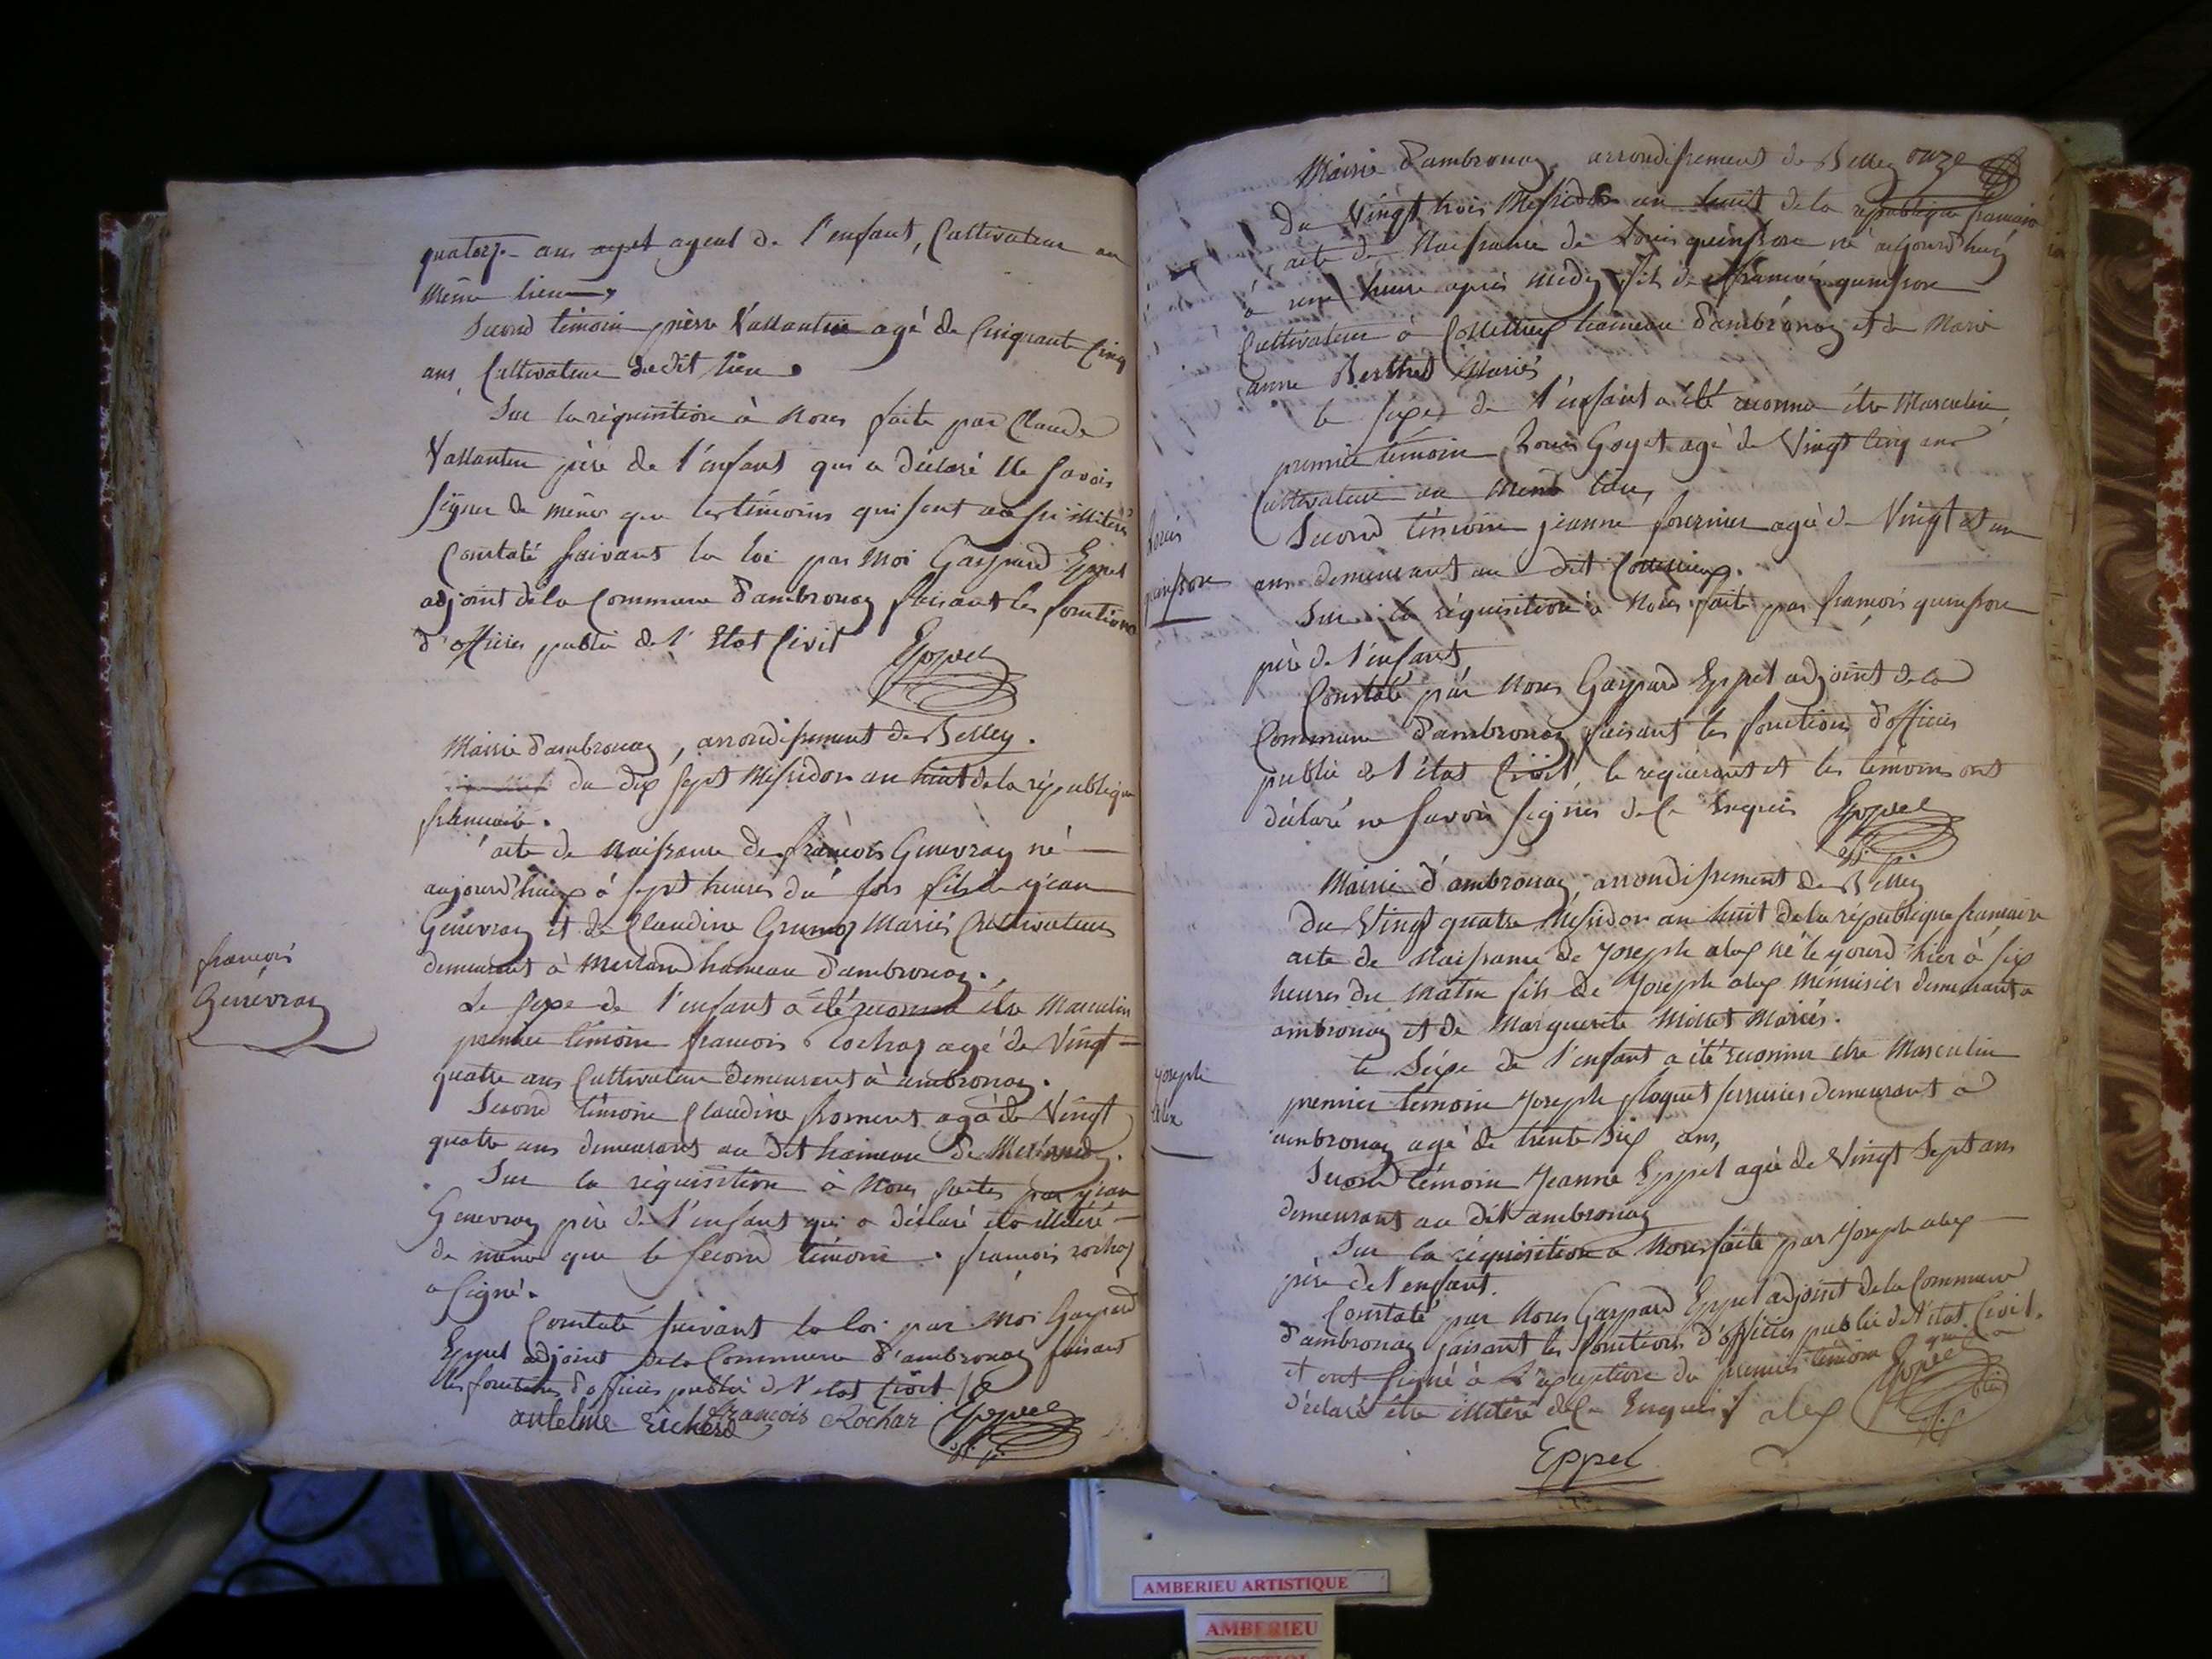 quatorze ans ayeul de l'enfant, Cultivateur au
même lieu,
Second témoin pierre Vallantin agé de Cinquante Cinq
ans, Cultivateur dudit lieu.
Sur la réquisition à Nous faite par Claude
Vallantin père de l'enfant qui a déclaré Ne savoir
signer de même que les témoins qui sont aussi illitérés
Constaté suivant la loi par Moi Gaspard Eppel
adjoint de la Commune d'ambronay faisant les fonctions
d'officier public de l'Etat Civil
Eppel
Mairie d'ambronay, arrondissement de Belley.
du dix sept Messidor an huit de la république
francaise.
acte de Naissance de francois Genevray né
aujourd'hui à sept heures du soir fils de jean
Genevray et de Claudine Mariés Cultivateurs
demeurant à Merland hameau d'ambronay.
francois
Genevray
Le sexe de l'enfant a été reconnu être Masculin
premier témoin francois Rochaz agé de Vingt
quatre ans Cultivateur demeurant à ambronay.
Second témoin Claudine froment agée de Vingt
quatre ans demeurant au dit hameau de Merland.
Sur la réquisition à Nous faite par jean
Genevray père de l'enfant qui a déclaré être illitéré
de même que le second témoin. francois rochaz
a signé.
Constaté suivant la loi par Moi Gaspard
Eppel adjoint de la Commune d'ambronay faisant
les fonctions d'officier public de l'etat Civil
antelme Richerd francois Rochaz Eppel
Mairie d'ambronay, arrondissement de Belley onze
Du Vingt trois Messidor an huit de la république francaise
acte de Naissance de Louis quinson né aujourd'huy
à une heure après Midy fils de francois quinson
Cultivateur à Coutelieu hameau d'ambronay et de Marie
anne Berthet Mariés
le sexe de l'enfant a été reconnu être Masculin
premier témoin Louis Goyet agé de Vingt Cinq ans
Cultivateur au même lieu,
Second témoin jeanne fournier agée de Vingt et un
ans demeurant au dit Coutelieu.
Louis
quinson
Sur la réquisition à Nous faite par francois quinson
père de l'enfant,
Constaté par Nous Gaspard Eppel adjoint de la
Commune d'ambronay faisant les fonctions d'officier
public de l'état Civil, le requérant et les témoins ont
déclaré ne savoir signer de ce Enquis Eppel
Mairie d'ambronay, arrondissement de Belley
Du Vingt quatre Messidor an huit de la république francaise
acte de Naissance de Joseph alex né le jourd'hier à six
heures du Matin fils de Joseph alex Ménuisier demeurant a
ambronay et de Marguerite Millet Mariés.
le Séxe de l'enfant a été reconnu etre Masculin
Joseph
alex
premier témoin Joseph ploquet serrurier demeurant a
ambronay agé de trente Six ans,
Second témoin Jeanne Eppel agée de Vingt Sept ans
demeurant au dit ambronay
Sur la réquisition a Nous faite par Joseph alex
père de l'enfant.
Constaté par Nous Gaspard Eppel adjoint de la Commune
d'ambronay faisant les fonctions d'officier public de l'état Civil.
et ont signé à l'exception du premier témoin qui a
déclaré être illitéré de ce Enquis alex Eppel
Eppel
AMBERIEU ARTISTIQUE
AMBERIEU